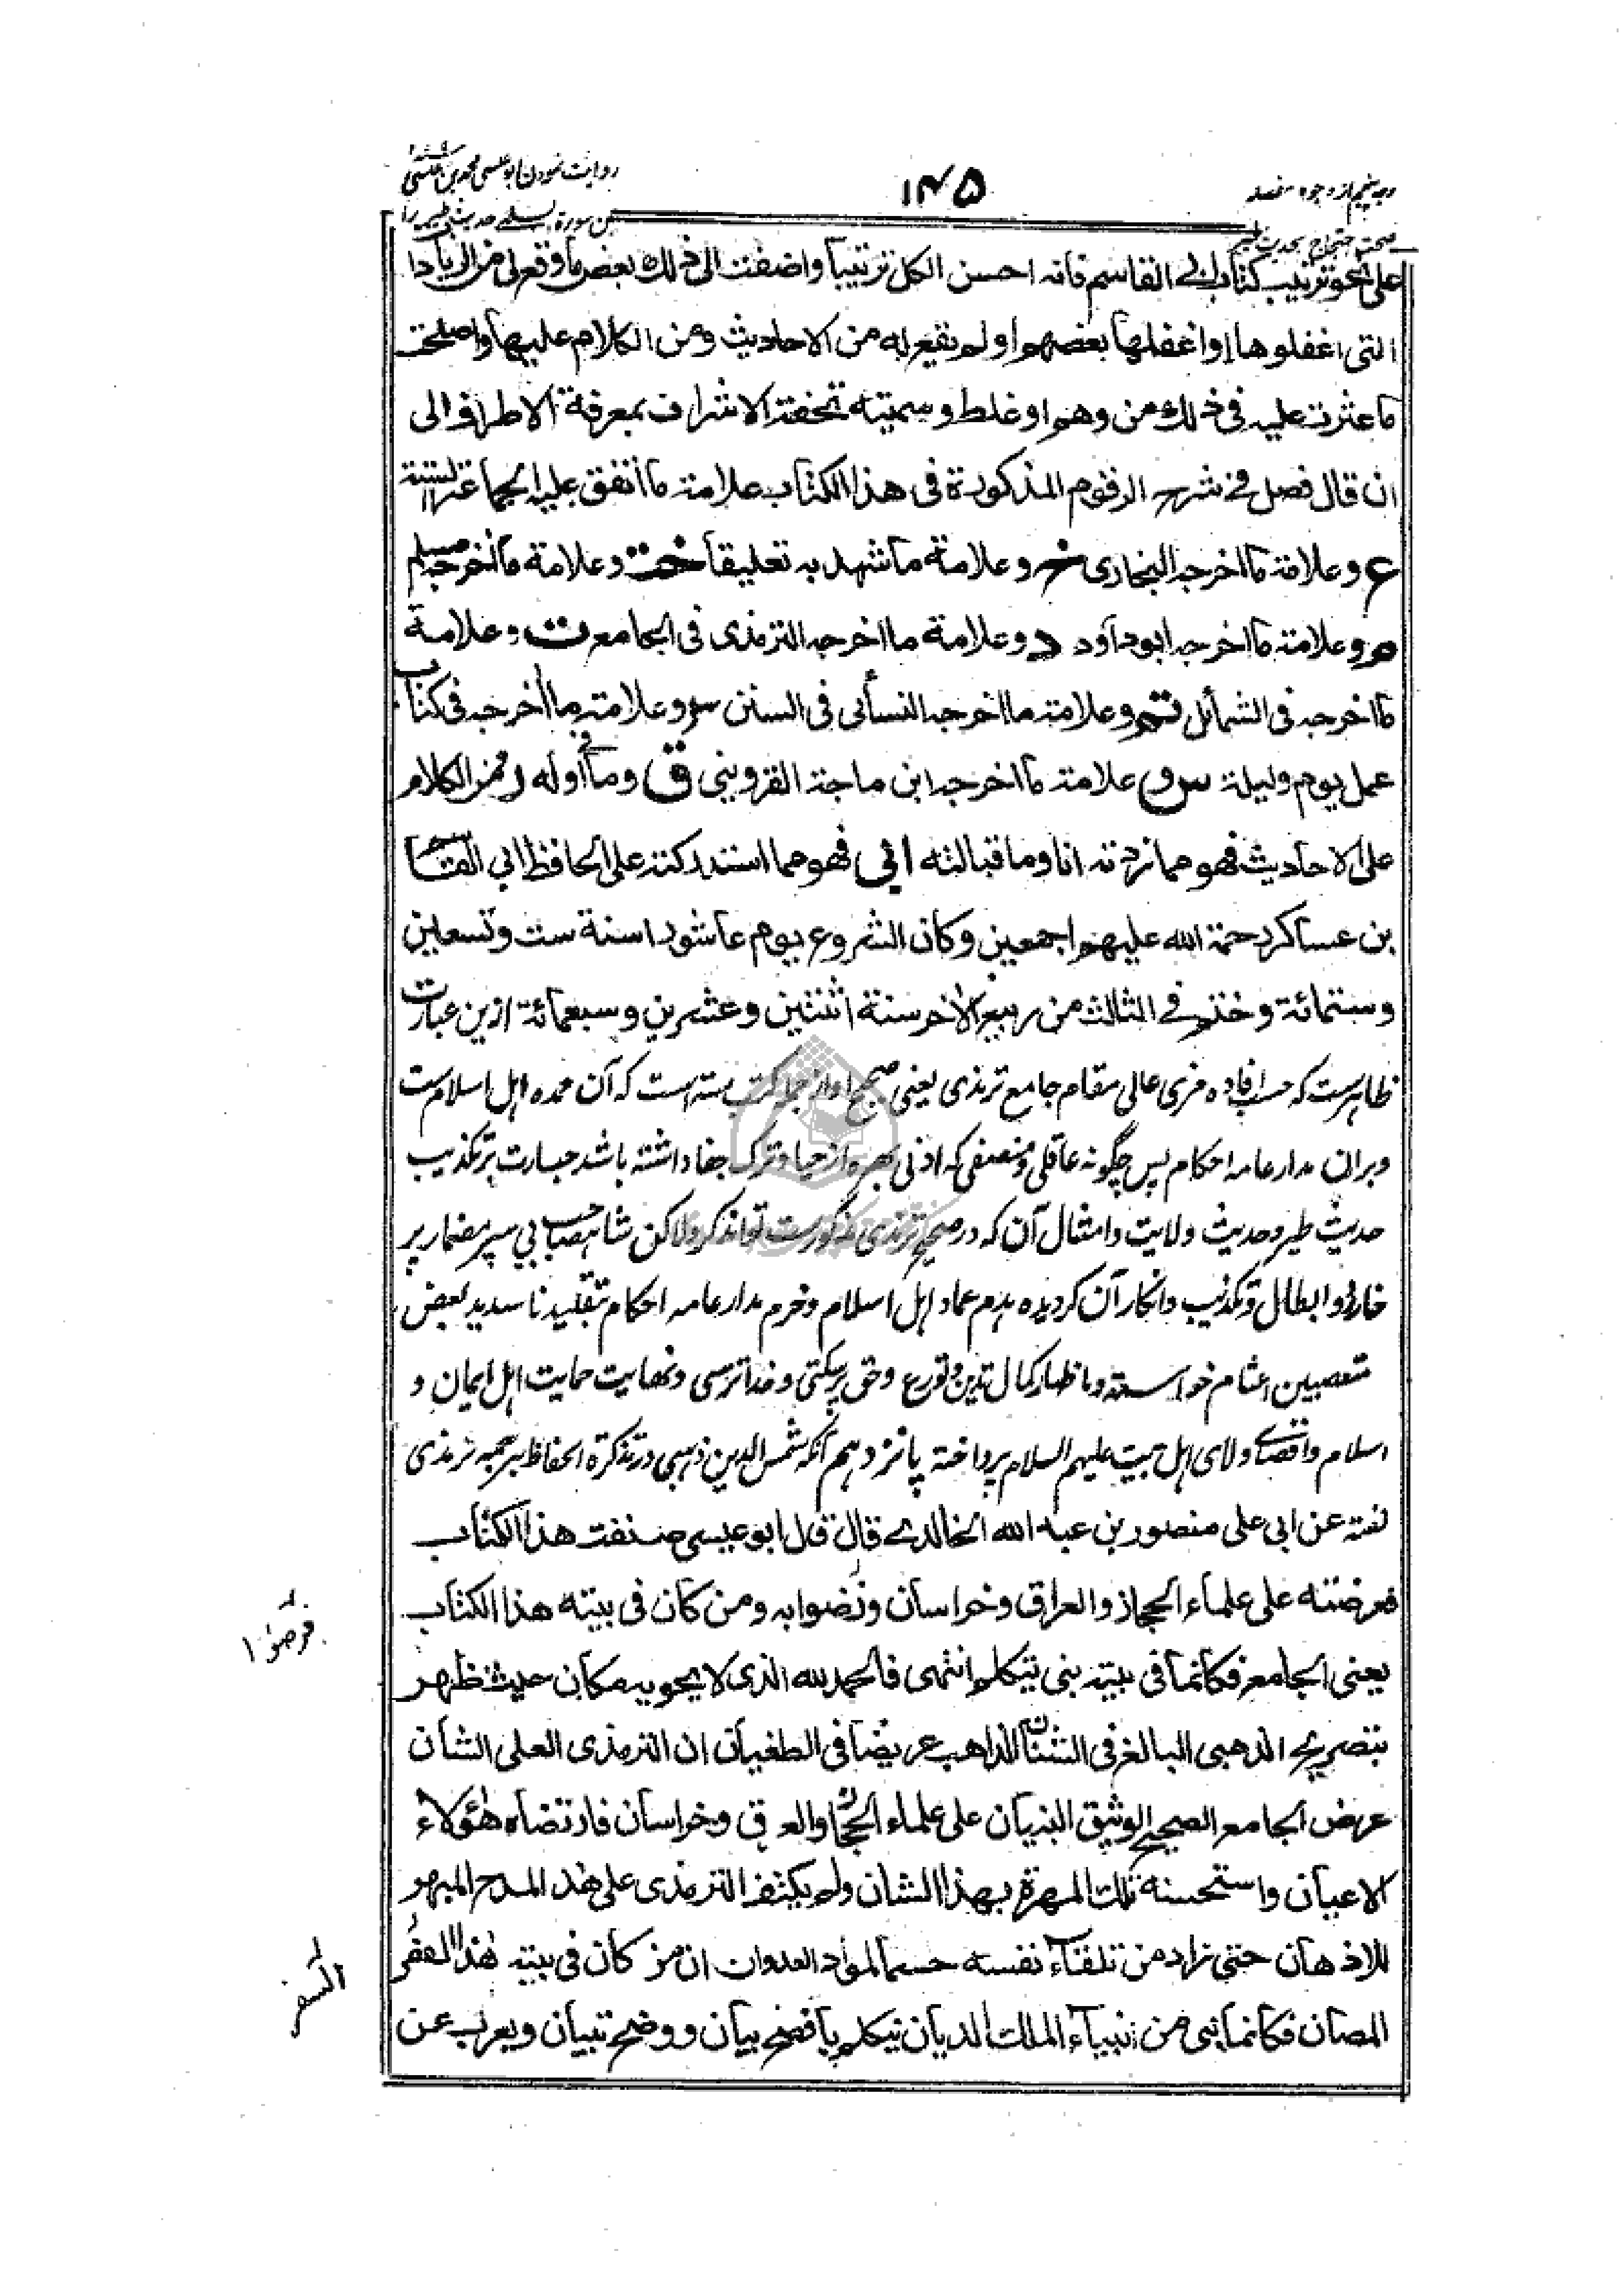 وجه پنجم از وجوه مفصد
صحت احتجاج بحدیث طیر
۱۴۵
روایت نمودن ابو عیسی محمد بن عیسی
بن سورة السلمی حدیث طیر را
علی نحو ترتیب کتاب ابی القاسم فانه احسن الکل ترتیبا واضفت الی ذلک بعض ما وقع لی من الزیادا
التی اغفلوها او اغفلها بعضهم او لم یقع له من الاحادیث ومن الکلام علیها واصلحت
ما عثرت علیه فی ذلک من وهم او غلط وسمیته تحفة الاشراف بمعرفة الاطراف الی
ان قال فصل فی شرح الرقوم المذکورة فی هذا الکتاب علامة ما اتفق علیه الجماعة الستة
ع وعلامة ما اخرجه البخاری خ وعلامة ما شهد به تعلیقا خت وعلامة ما اخرجه مسلم
م وعلامة ما اخرجه ابو داود د وعلامة ما اخرجه الترمذی فی الجامع ت وعلامة
ما اخرجه فی الشمائل تم وعلامة ما اخرجه النسائی فی السنن س وعلامة ما اخرجه فی کتاب
عمل یوم ولیلة سی علامة ما اخرجه ابن ماجة القزوینی ق وما فی اوله ز من الکلام
علی الاحادیث فهو مما زدته انا وما قبالته فهو مما استدرکته علی الحافظ ابی القاسم
بن عساکر رحمة الله علیهم اجمعین وکان الشروع یوم عاشورا سنة ست وتسعین
وستمائة وختم فی الثالث من ربیع الآخر سنة اثنتین وعشرین وسبعمائة ازین عبارت
ظاهرست که حسب افاده مزی عالی مقام جامع ترمذی یعنی صحیح او از جمله کتب سته است که آن عمده اهل اسلام ست
وبران مدار عامه احکام پس چگونه عاقلی ومنصفی که ادنی بهره از حیا وترک جفا داشته باشد جسارت بر تکذیب
حدیث طیر وحدیث ولایت وامثال آن که در صحیح ترمذی مذکورست تواند کرد ولاکن شاهصاحب پی سپر مضمار پر
خار رد وابطال وتکذیب وانکار آن گردیده هدم عماد اهل اسلام وخرم مدار عامه احکام بتقلید ناسدید بعض
متعصبین اغثام خواسته وباظهار کمال تدین وتورع وحق پرستی وخداترسی ونهایت حمایت اهل ایمان و
اسلام واقصای ولای اهل بیت علیهم السلام پرداخته پانزدهم آنکه شمس الدین ذهبی در تذکرة الحفاظ بترجمه ترمذی
گفته عن ابی علی منصور بن عبد الله الخالدی قال قال ابو عیسی صنفت هذا الکتاب
فعرضته علی علماء الحجاز والعراق وخراسان ورضوا به ومن کان فی بیته هذا الکتاب
یعنی الجامع فکانما فی بیته نبی یتکلم انتهی فالحمد لله الذی لا یحویه مکان حیث ظهر
بتصریح الذهبی البالغ فی الشنان الذاهب عریضا فی الطغیان ان الترمذی العلی الشان
عرض الجامع الصحیح الوثیق البنیان علی علماء الحجاز والعراق وخراسان فارتضاه هؤلاء
الاعیان واستحسنه تلک المهرة بهذا الشان ولم یکتف الترمذی علی هذا المدح المبهر
للاذهان حتی زاد من تلقاء نفسه حسما لمواد العدوان ان من کان فی بیته هذا السفر
المصان فکانما نبی من انبیاء الملک الدیان یتکلم بافصح بیان ووضح تبیان ویعرب عن
فرضوا
السفر